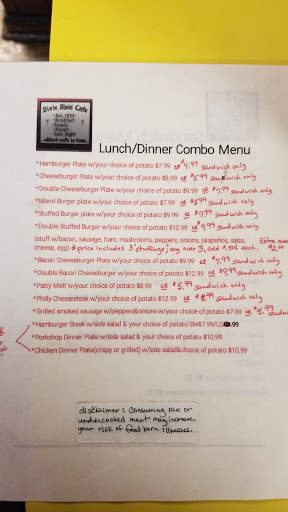 Dixie Maid Cafe
Lunch/Dinner Combo Menu
*Hamburger Plate w/your choice of potato $7.99 or $4.99 sandwich only
*Cheeseburger Plate w/your choice of potato $8.99 or $5.99 sandwich only
*Double Cheeseburger Plate w/your choice of potato $9.99 or $7.99 sandwich only
*Island Burger plate w/your choice of potato $7.99 or $5.99 sandwich only
*Stuffed Burger plate w/your choice of potato $9.99 or $7.99 sandwich only
*Double Stuffed Burger w/your choice of potato $12.99 or $9.99 sandwich only
(stuff w/bacon, sausage, ham, mushrooms, peppers, onions, jalapeños, salsa, Extra meat
cheese, egg) * price includes 3 stuffings; any over 3, add each. $2.00
*Bacon Cheeseburger Plate w/your choice of potato $9.99 or $7.99 sandwich only
*Double Bacon Cheeseburger Plate w/your choice of potato $12.99 or $9.99 sandwich only
*Patty Melt w/your choice of potato $8.99 or $5.99 sandwich only
*Philly Cheesesteak w/your choice of potato $12.99 or $8.99 sandwich only
*Grilled smoked sausage w/peppers&onions w/your choice of potato $7.99 or $5.99 sandwich
*Hamburger Steak w/side salad & your choice of potato SM$7.99/LG .99
*Porkchop Dinner Plate w/side salad & your choice of potato $10.99
*Chicken Dinner Plate(crispy or grilled) w/side salad&choice of potato $10.99
disclaimer: Consuming raw or
undercooked meat may increase
your risk of food born illnesses.